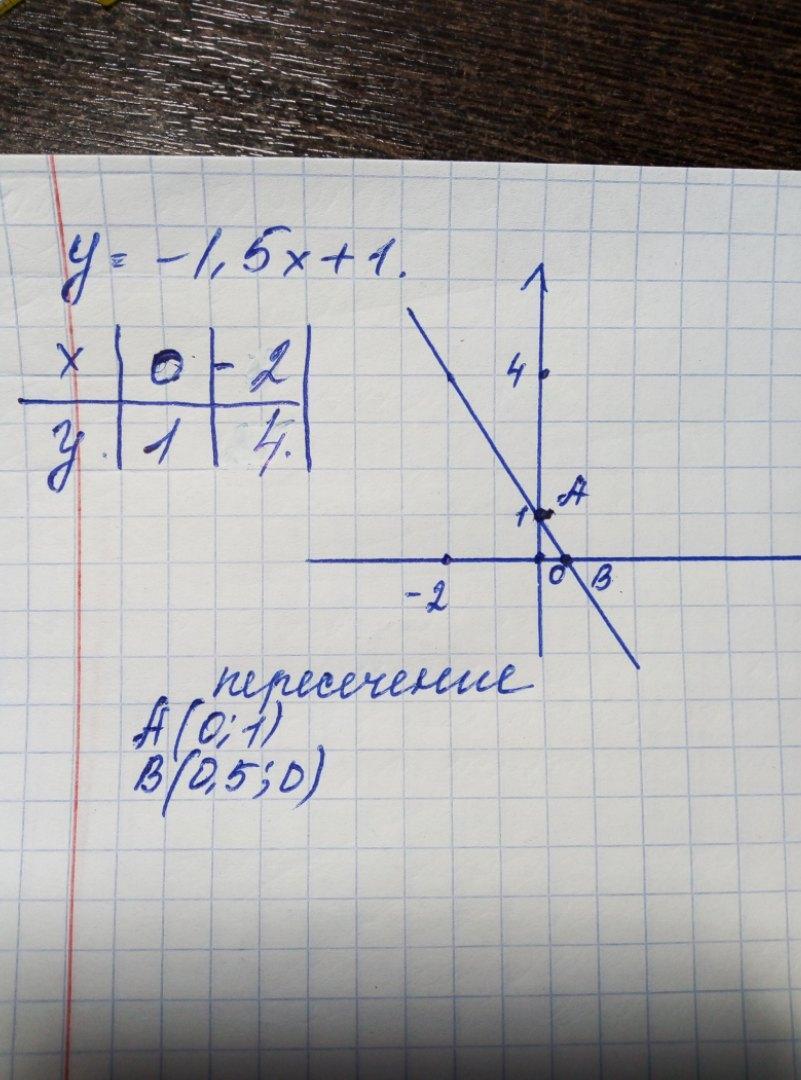 y = -1,5x + 1.
x | 0 | -2 |
y. | 1 | 4. |
4
1 A
-2 0 B
пересечение
A(0;1)
B(0,5;0)